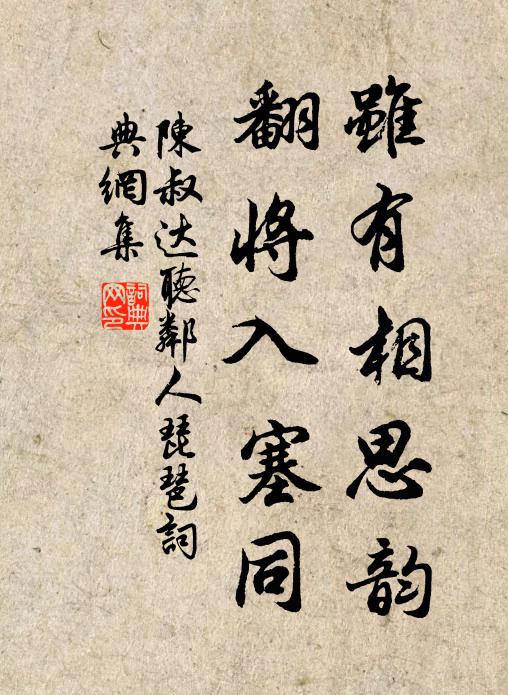 雖有相思韵
翻将入塞同
陳叔达聽鄰人琵琶詞
典網集
詞典网印